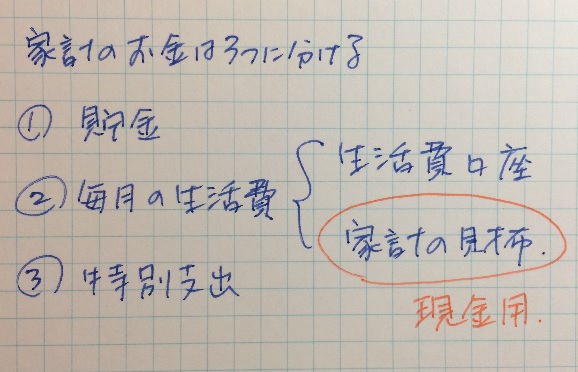 家計のお金は3つに分ける
① 貯金
② 毎月の生活費
生活費口座
家計の財布.
現金用.
③ 特別支出